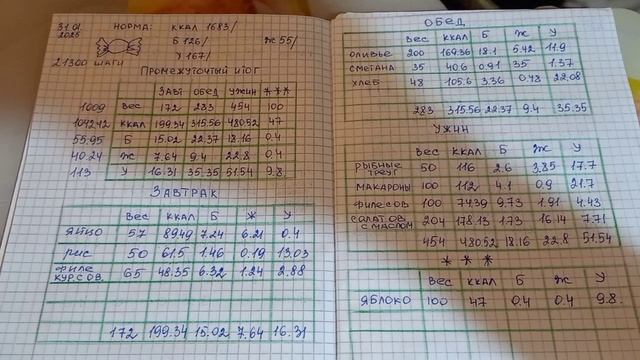 31.01
2025
НОРМА: ККАЛ 1683/
Б 126/ Ж 55/
У 167/
21300 ШАГИ
ПРОМЕЖУТОЧНЫЙ ИТОГ
ЗАВТ ОБЕД УЖИН ***
1009 ВЕС 172 283 454 100
1042.42 ККАЛ 199.34 315.56 480.52 47
55.95 Б 15.02 22.37 18.16 0.4
40.24 Ж 7.64 9.4 22.8 0.4
113 У 16.31 35.35 51.54 9.8
ЗАВТРАК
ВЕС ККАЛ Б Ж У
ЯЙЦО 57 89.49 7.24 6.21 0.4
РИС 50 61.5 1.46 0.19 13.03
ФИЛЕ КУР.С ОВ. 65 48.35 6.32 1.24 2.88
172 199.34 15.02 7.64 16.31
ОБЕД
ВЕС ККАЛ Б Ж У
ОЛИВЬЕ 200 169.36 18.1 5.42 11.9
СМЕТАНА 35 40.6 0.91 3.5 1.37
ХЛЕБ 48 105.6 3.36 0.48 22.08
283 315.56 22.37 9.4 35.35
УЖИН
ВЕС ККАЛ Б Ж У
РЫБНЫЕ ТРЕУГ 50 116 2.6 3.85 17.7
МАКАРОНЫ 100 112 4.1 0.9 21.7
ФИЛЕ С ОВ 100 74.39 9.73 1.91 4.43
САЛАТ ОВ. С МАСЛОМ 204 178.13 1.73 16.14 7.71
454 480.52 18.16 22.8 51.54
***
ВЕС ККАЛ Б Ж У
ЯБЛОКО 100 47 0.4 0.4 9.8